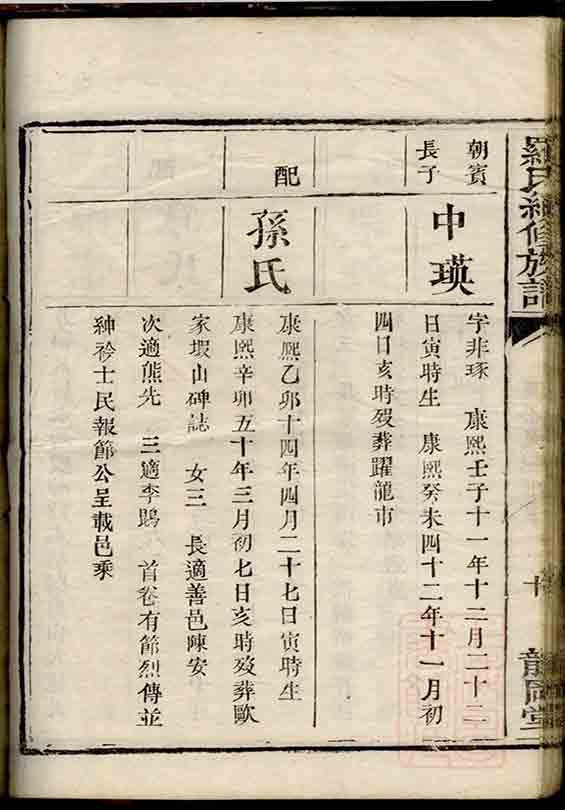 羅氏續修族譜
龍岡堂
朝賓
長子
中瑛
字非琢 康熙壬子十一年十二月二十二
日寅時生 康熙癸未四十二年十一月初
四日亥時歿葬躍龍市
配
孫氏
康熙乙卯十四年四月二十七日寅時生
康熙辛卯五十年三月初七日亥時歿葬歐
家塅山碑誌 女三 長適善邑陳安
次適熊先 三適李鵾 首卷有節烈傳並
紳衿士民報節公呈載邑乘